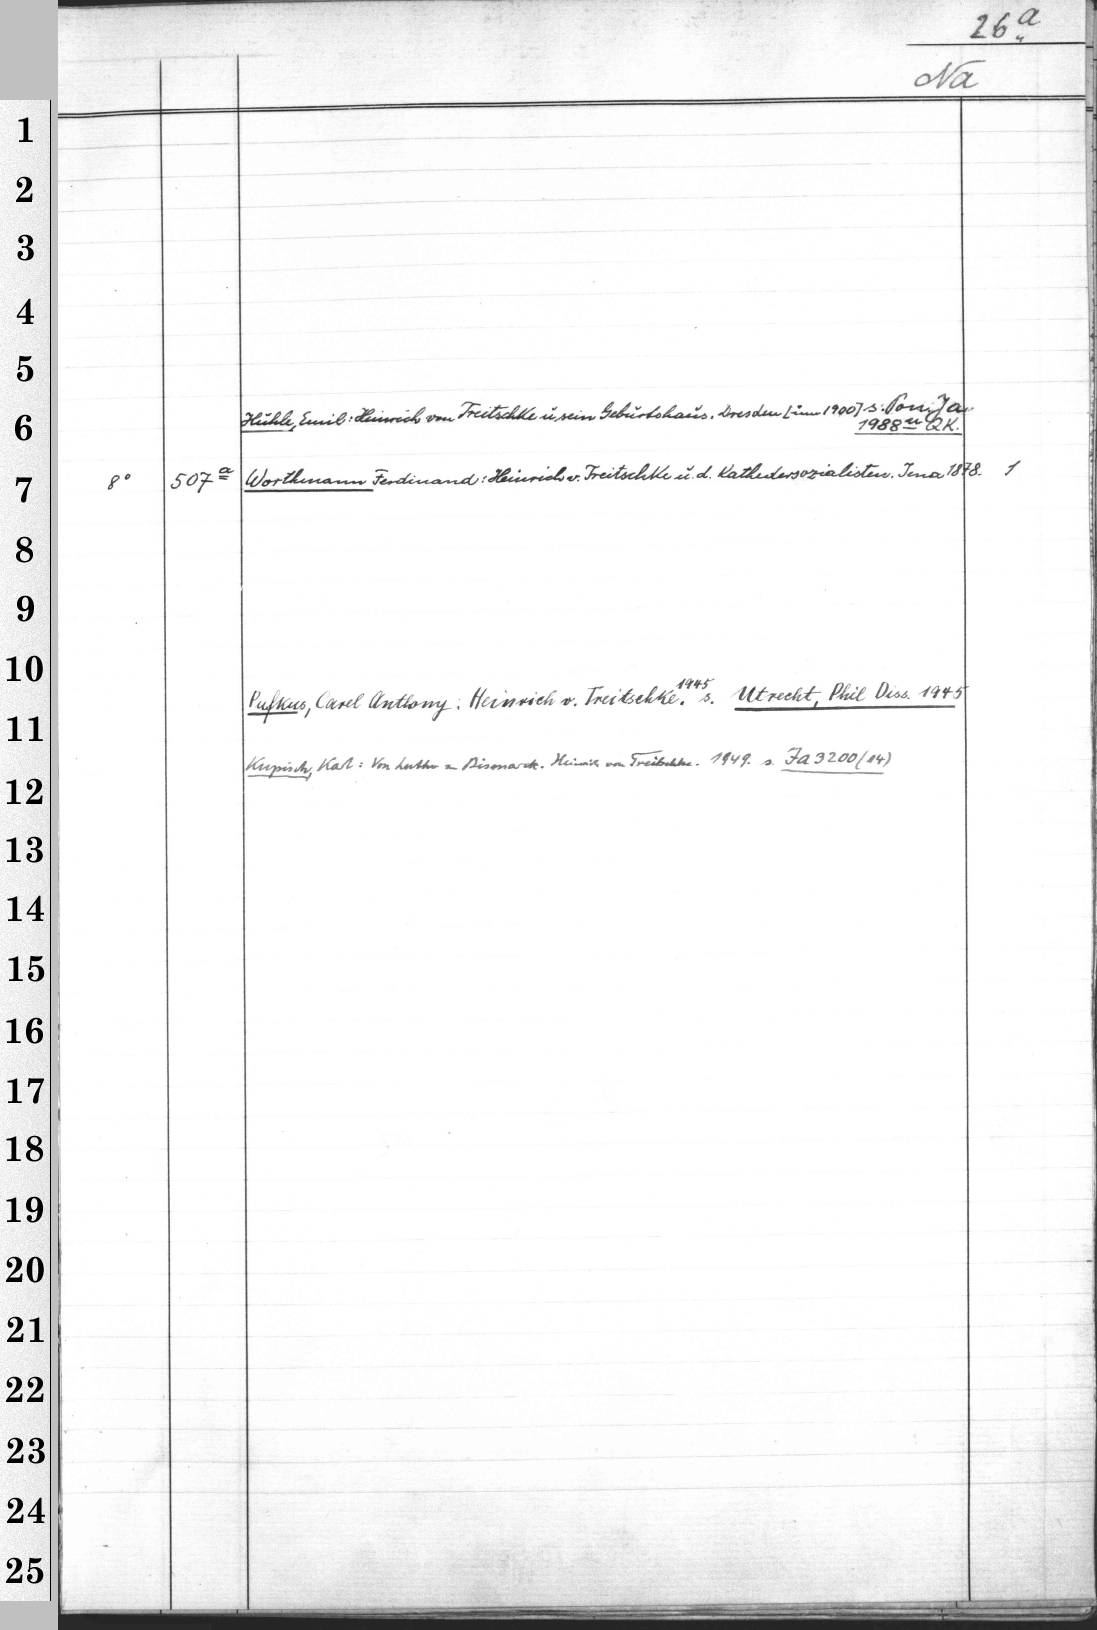 26a
Na
1
2
3
4
5
6
Hühle, Emil: Heinrich von Treitschke u. sein Geburtshaus. Dresden [um 1900] s. Pon. Ja.
1988 u QK.
7
8° 507a Worthmann Ferdinand: Heinrich v. Treitschke u. d. Kathedersozialisten. Jena 1878. 1
8
9
10
1945
Pufkus, Carel Anthony: Heinrich v. Treitschke. s. Utrecht, Phil Diss. 1945
11
Kupisch, Karl: Von Luther zu Bismarck. Heinrich von Treitschke. 1949. s. Ja 3200 (14)
12
13
14
15
16
17
18
19
20
21
22
23
24
25